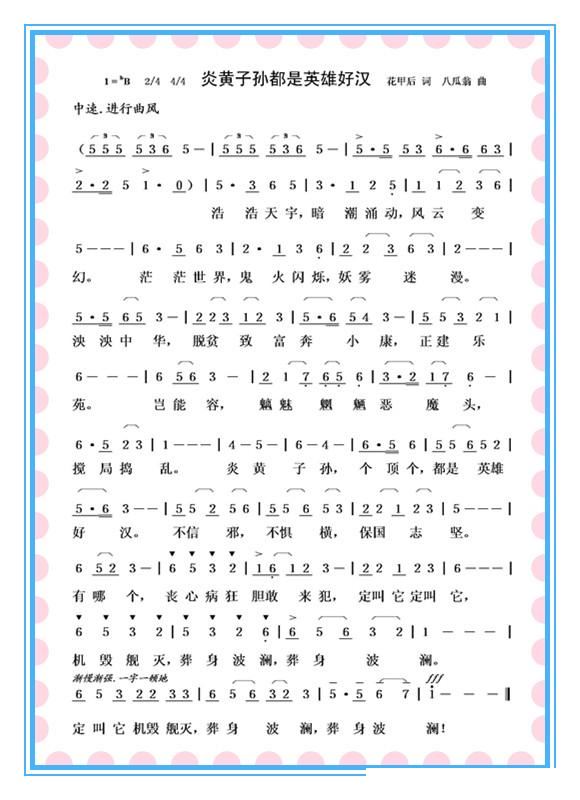 1=♭B 2/4 4/4 炎黄子孙都是英雄好汉 花甲后 词 八瓜翁 曲
中速.进行曲风
(555 536 5- | 555 536 5- | 5·5 53 6·6 63 |
2·2 5 1·0) | 5· 3 6 5 | 3· 1 2 5 | 1 1 2 3 6 |
浩 浩天宇,暗 潮涌动,风云 变
5--- | 6· 5 6 3 | 2· 1 3 6 | 2 2 3 6 3 | 2--- |
幻。 茫 茫世界,鬼 火闪烁,妖雾 迷 漫。
5·5 65 3- | 223 12 3- | 5·6 54 3- | 55 32 1 |
泱泱中 华, 脱贫 致 富奔 小 康, 正建 乐
6--- | 6 56 3 - | 2 1 7 65 6 | 3·2 17 6 - |
苑。 岂能 容, 魑 魅 魍 魉 恶 魔 头,
6· 5 23 | 1--- | 4-5- | 6-4- | 6·5 6 | 55 652 |
搅 局捣 乱。 炎 黄 子 孙, 个 顶个,都是 英雄
5·6 3-- | 55 2 56 | 55 65 3 | 22 1 23 | 5--- |
好 汉。 不信 邪, 不惧 横, 保国 志 坚。
6 52 3- | 6 5 3 2 | 16 12 3- | 22 1 3 - |
有哪 个, 丧心病狂 胆敢 来 犯, 定叫它定叫 它,
6 5 3 2 | 5 3 2 6 | 6 5 6 3 | 1 -- |
机 毁 舰 灭,葬 身 波 澜,葬 身 波 澜。
渐慢渐强.一字一顿地 fff
6 5 3 22 33 | 6 6 32 3 | 5·5 6 7 | i-- ‖
定叫它机毁舰灭,葬 身 波 澜,葬身 波 澜!